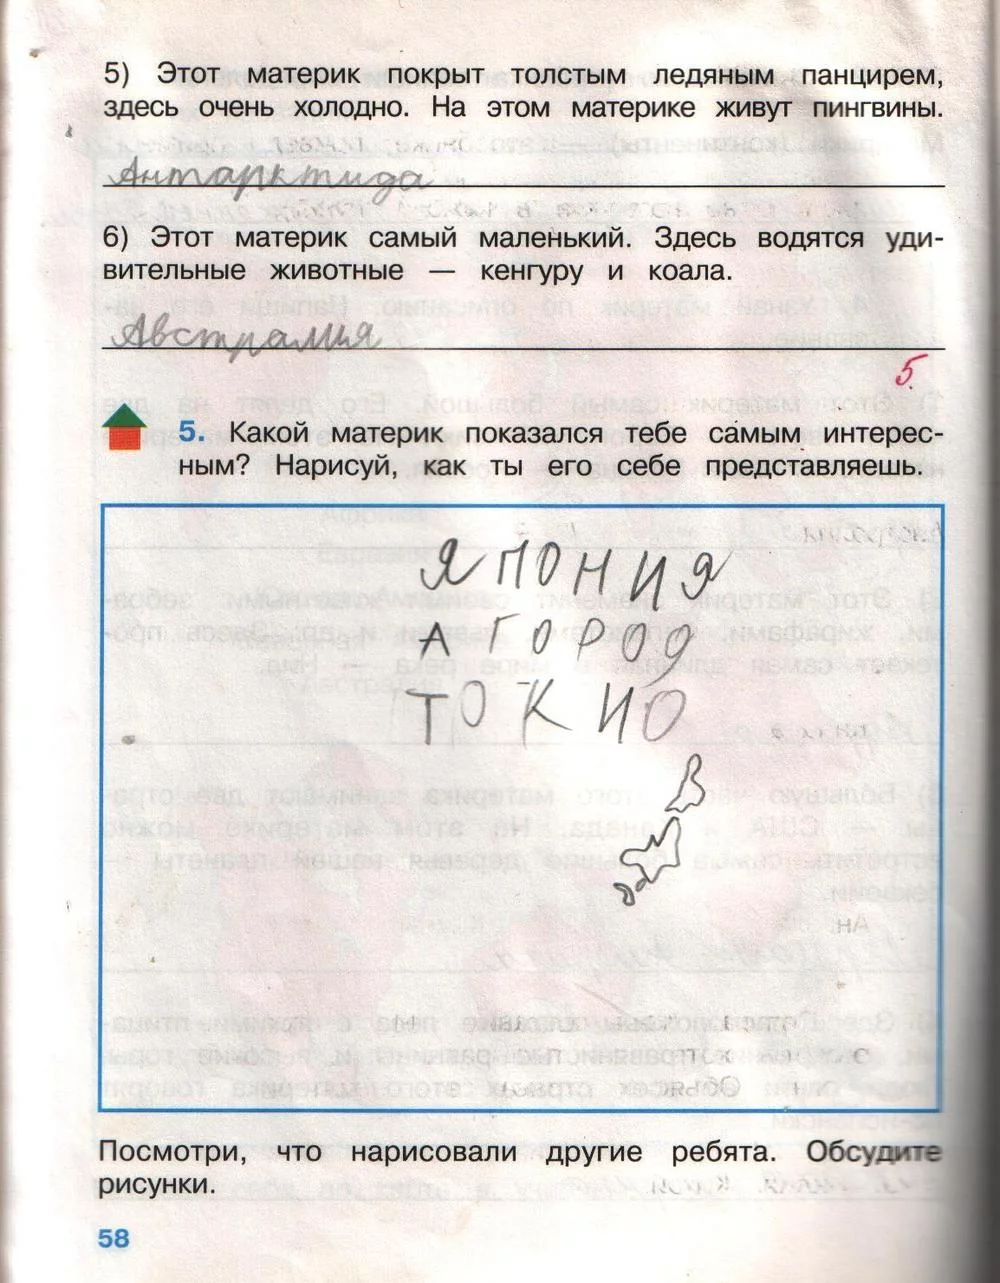 5) Этот материк покрыт толстым ледяным панцирем,
здесь очень холодно. На этом материке живут пингвины.
Антарктида
6) Этот материк самый маленький. Здесь водятся уди-
вительные животные — кенгуру и коала.
Австралия
5.
5. Какой материк показался тебе самым интерес-
ным? Нарисуй, как ты его себе представляешь.
ЯПОНИЯ
А ГОРОД
ТОКИО
Посмотри, что нарисовали другие ребята. Обсудите
рисунки.
58